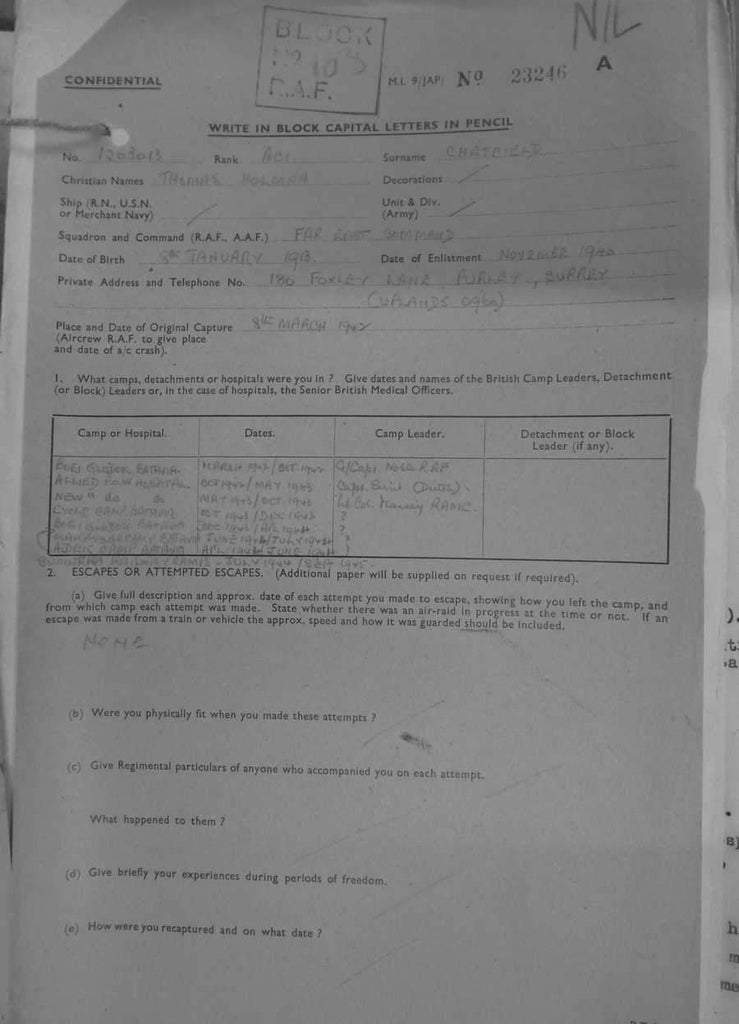 NIL
BLOCK
No 103
R.A.F.
CONFIDENTIAL
M.I. 9/JAP/ No 23246 A
WRITE IN BLOCK CAPITAL LETTERS IN PENCIL
No. 1203013 Rank AC1 Surname CHATFIELD
Christian Names THOMAS Decorations /
Ship (R.N., U.S.N. or Merchant Navy) / Unit & Div. (Army) /
Squadron and Command (R.A.F., A.A.F.) FAR EAST COMMAND
Date of Birth 8th JANUARY 1913. Date of Enlistment NOVEMBER 1940
Private Address and Telephone No. 180 FOXLEY LANE, PURLEY, SURREY
(UPLANDS 0960)
Place and Date of Original Capture 8th MARCH 1942
(Aircrew R.A.F. to give place
and date of a/c crash).
1. What camps, detachments or hospitals were you in ? Give dates and names of the British Camp Leaders, Detachment
(or Block) Leaders or, in the case of hospitals, the Senior British Medical Officers.
Camp or Hospital. Dates. Camp Leader. Detachment or Block Leader (if any).
BOEI GLODOK, BATAVIA. MARCH 1942/OCT 1942 G/Capt Noble RAF
ALLIED P.O.W HOSPITAL. OCT 1942/MAY 1943 Capt. (Dutch).
NEW " do do MAY 1943/OCT 1943 Lt Col. Maisey RAMC.
CYCLE CAMP BATAVIA OCT 1943/DEC 1943 ?
BOEI GLODOK BATAVIA DEC 1943/APL 1944 ?
MAKASSAR CAMP BATAVIA JUNE 1944/JULY 1944 ?
ADRIS CAMP BATAVIA APL 1944/JUNE 1944 ?
SUMATRA RAILWAY CAMPS - JULY 1944/SEPT 1945
2. ESCAPES OR ATTEMPTED ESCAPES. (Additional paper will be supplied on request if required).
(a) Give full description and approx. date of each attempt you made to escape, showing how you left the camp, and
from which camp each attempt was made. State whether there was an air-raid in progress at the time or not. If an
escape was made from a train or vehicle the approx. speed and how it was guarded should be included.
NONE
(b) Were you physically fit when you made these attempts ?
(c) Give Regimental particulars of anyone who accompanied you on each attempt.
What happened to them ?
(d) Give briefly your experiences during periods of freedom.
(e) How were you recaptured and on what date ?